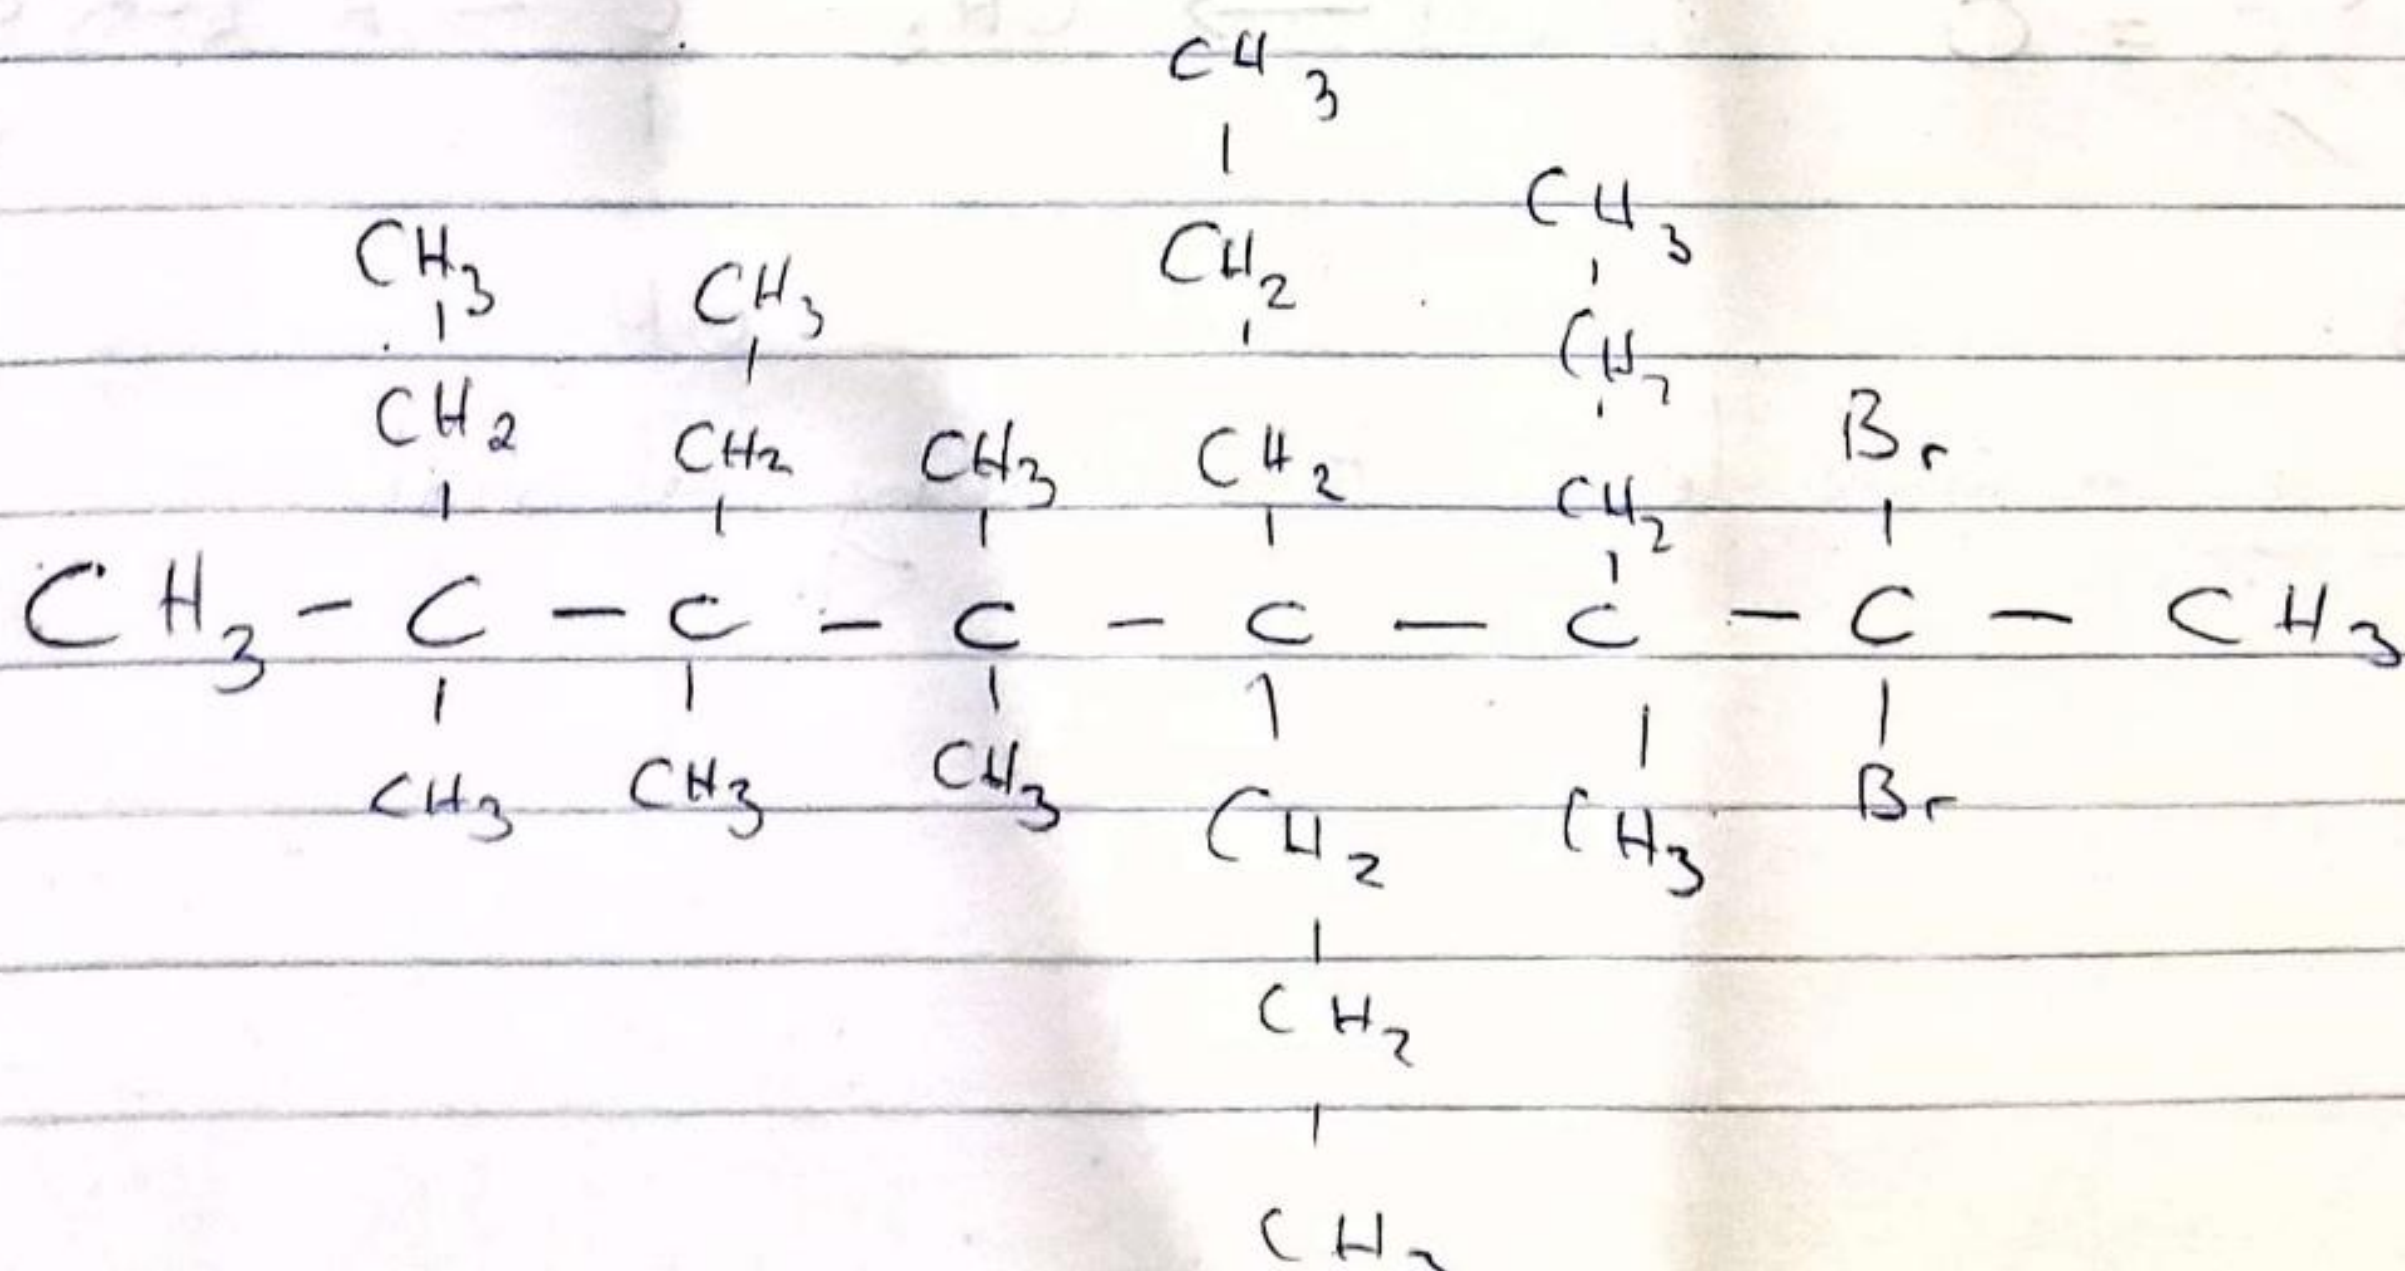 CH3
CH3
CH3 CH3 CH2
CH2 CH2
CH2 CH3 CH2 Br
CH2
CH3 - C - C - C - C - C - C - CH3
CH3 CH3 CH3 CH2 CH3 Br
CH2
CH